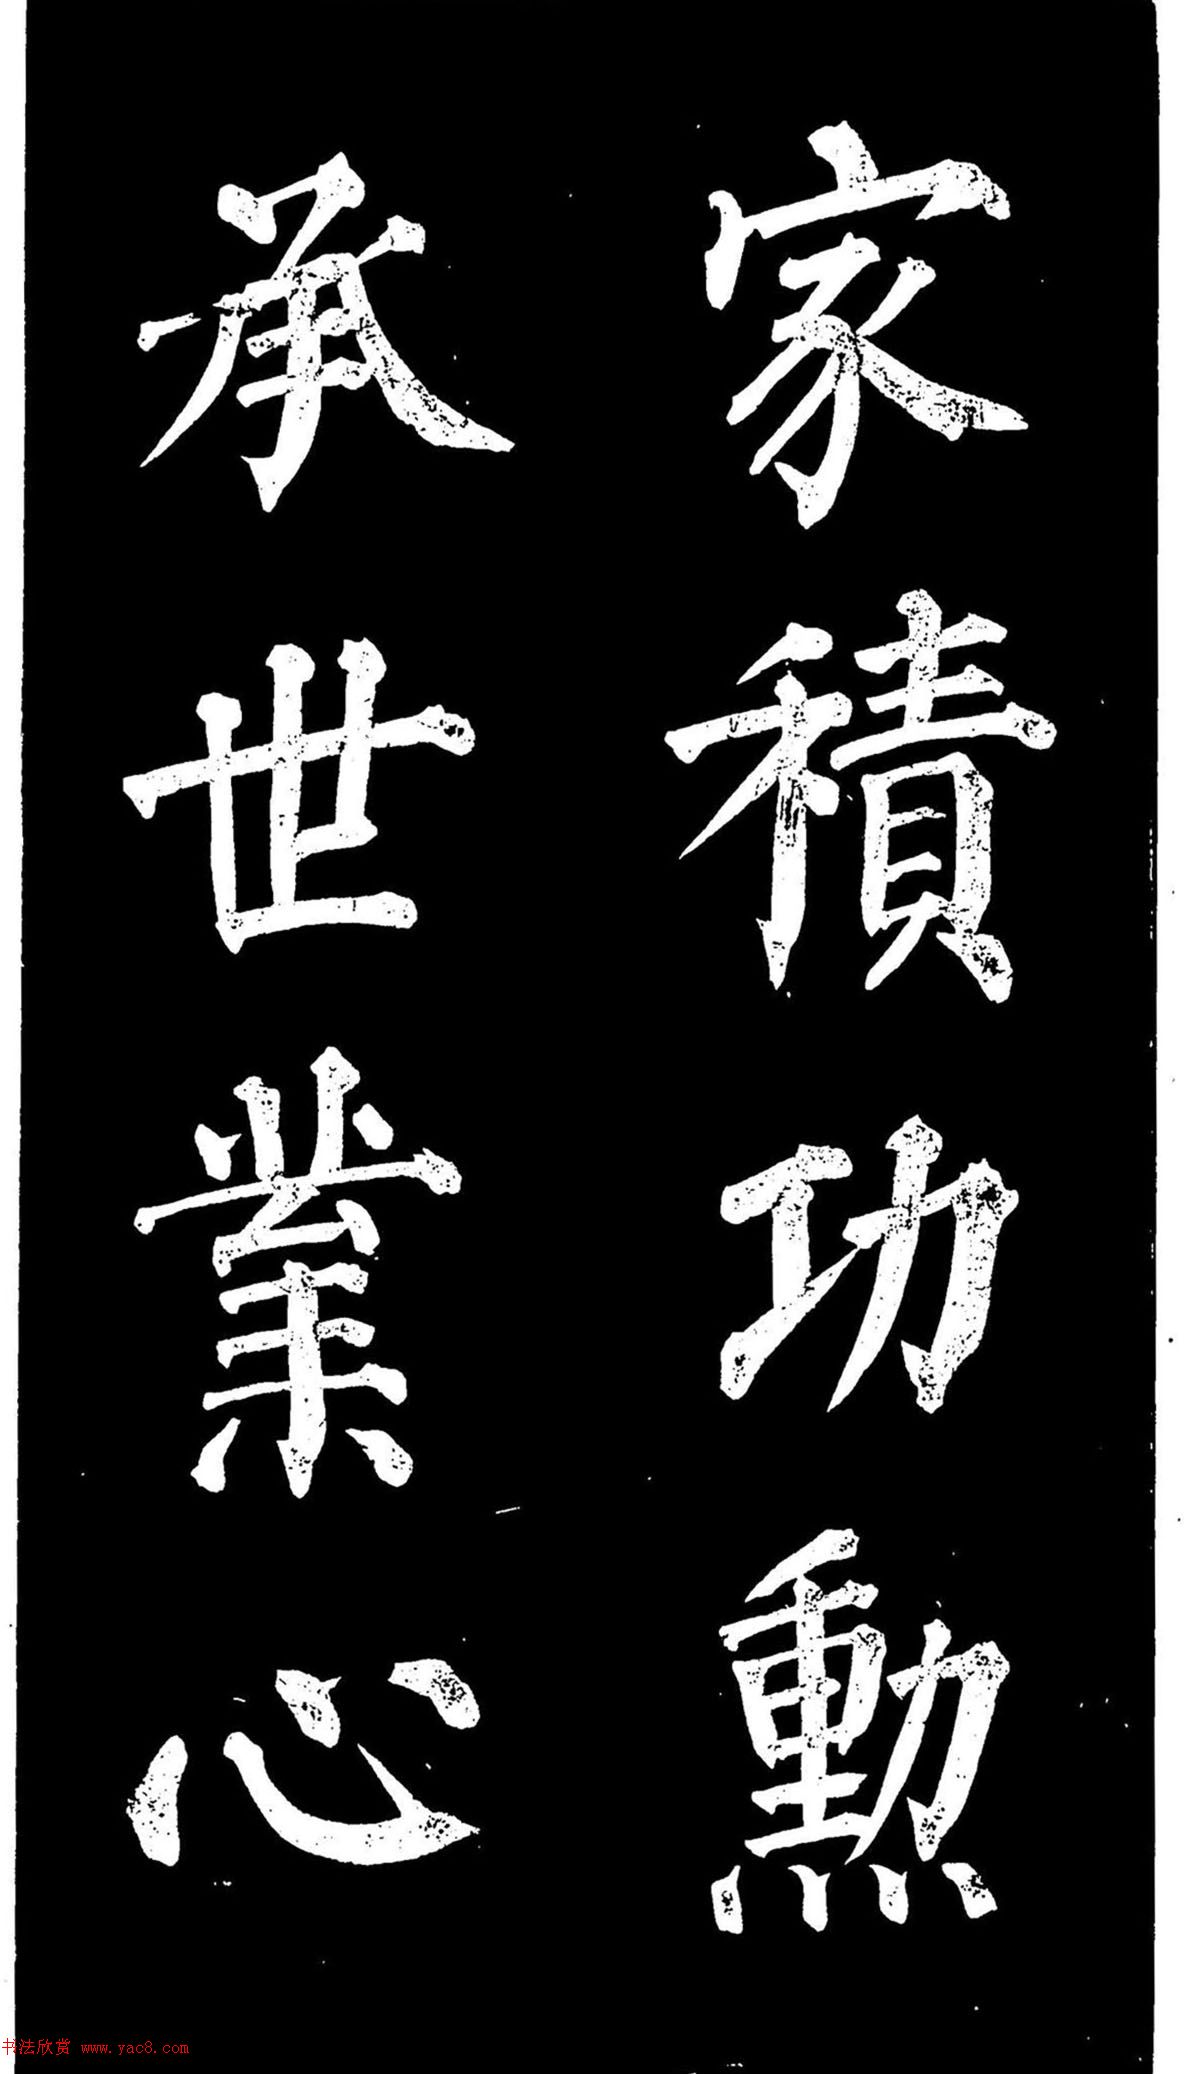 家積功勳
承世業心
书法欣赏 www.yac8.com